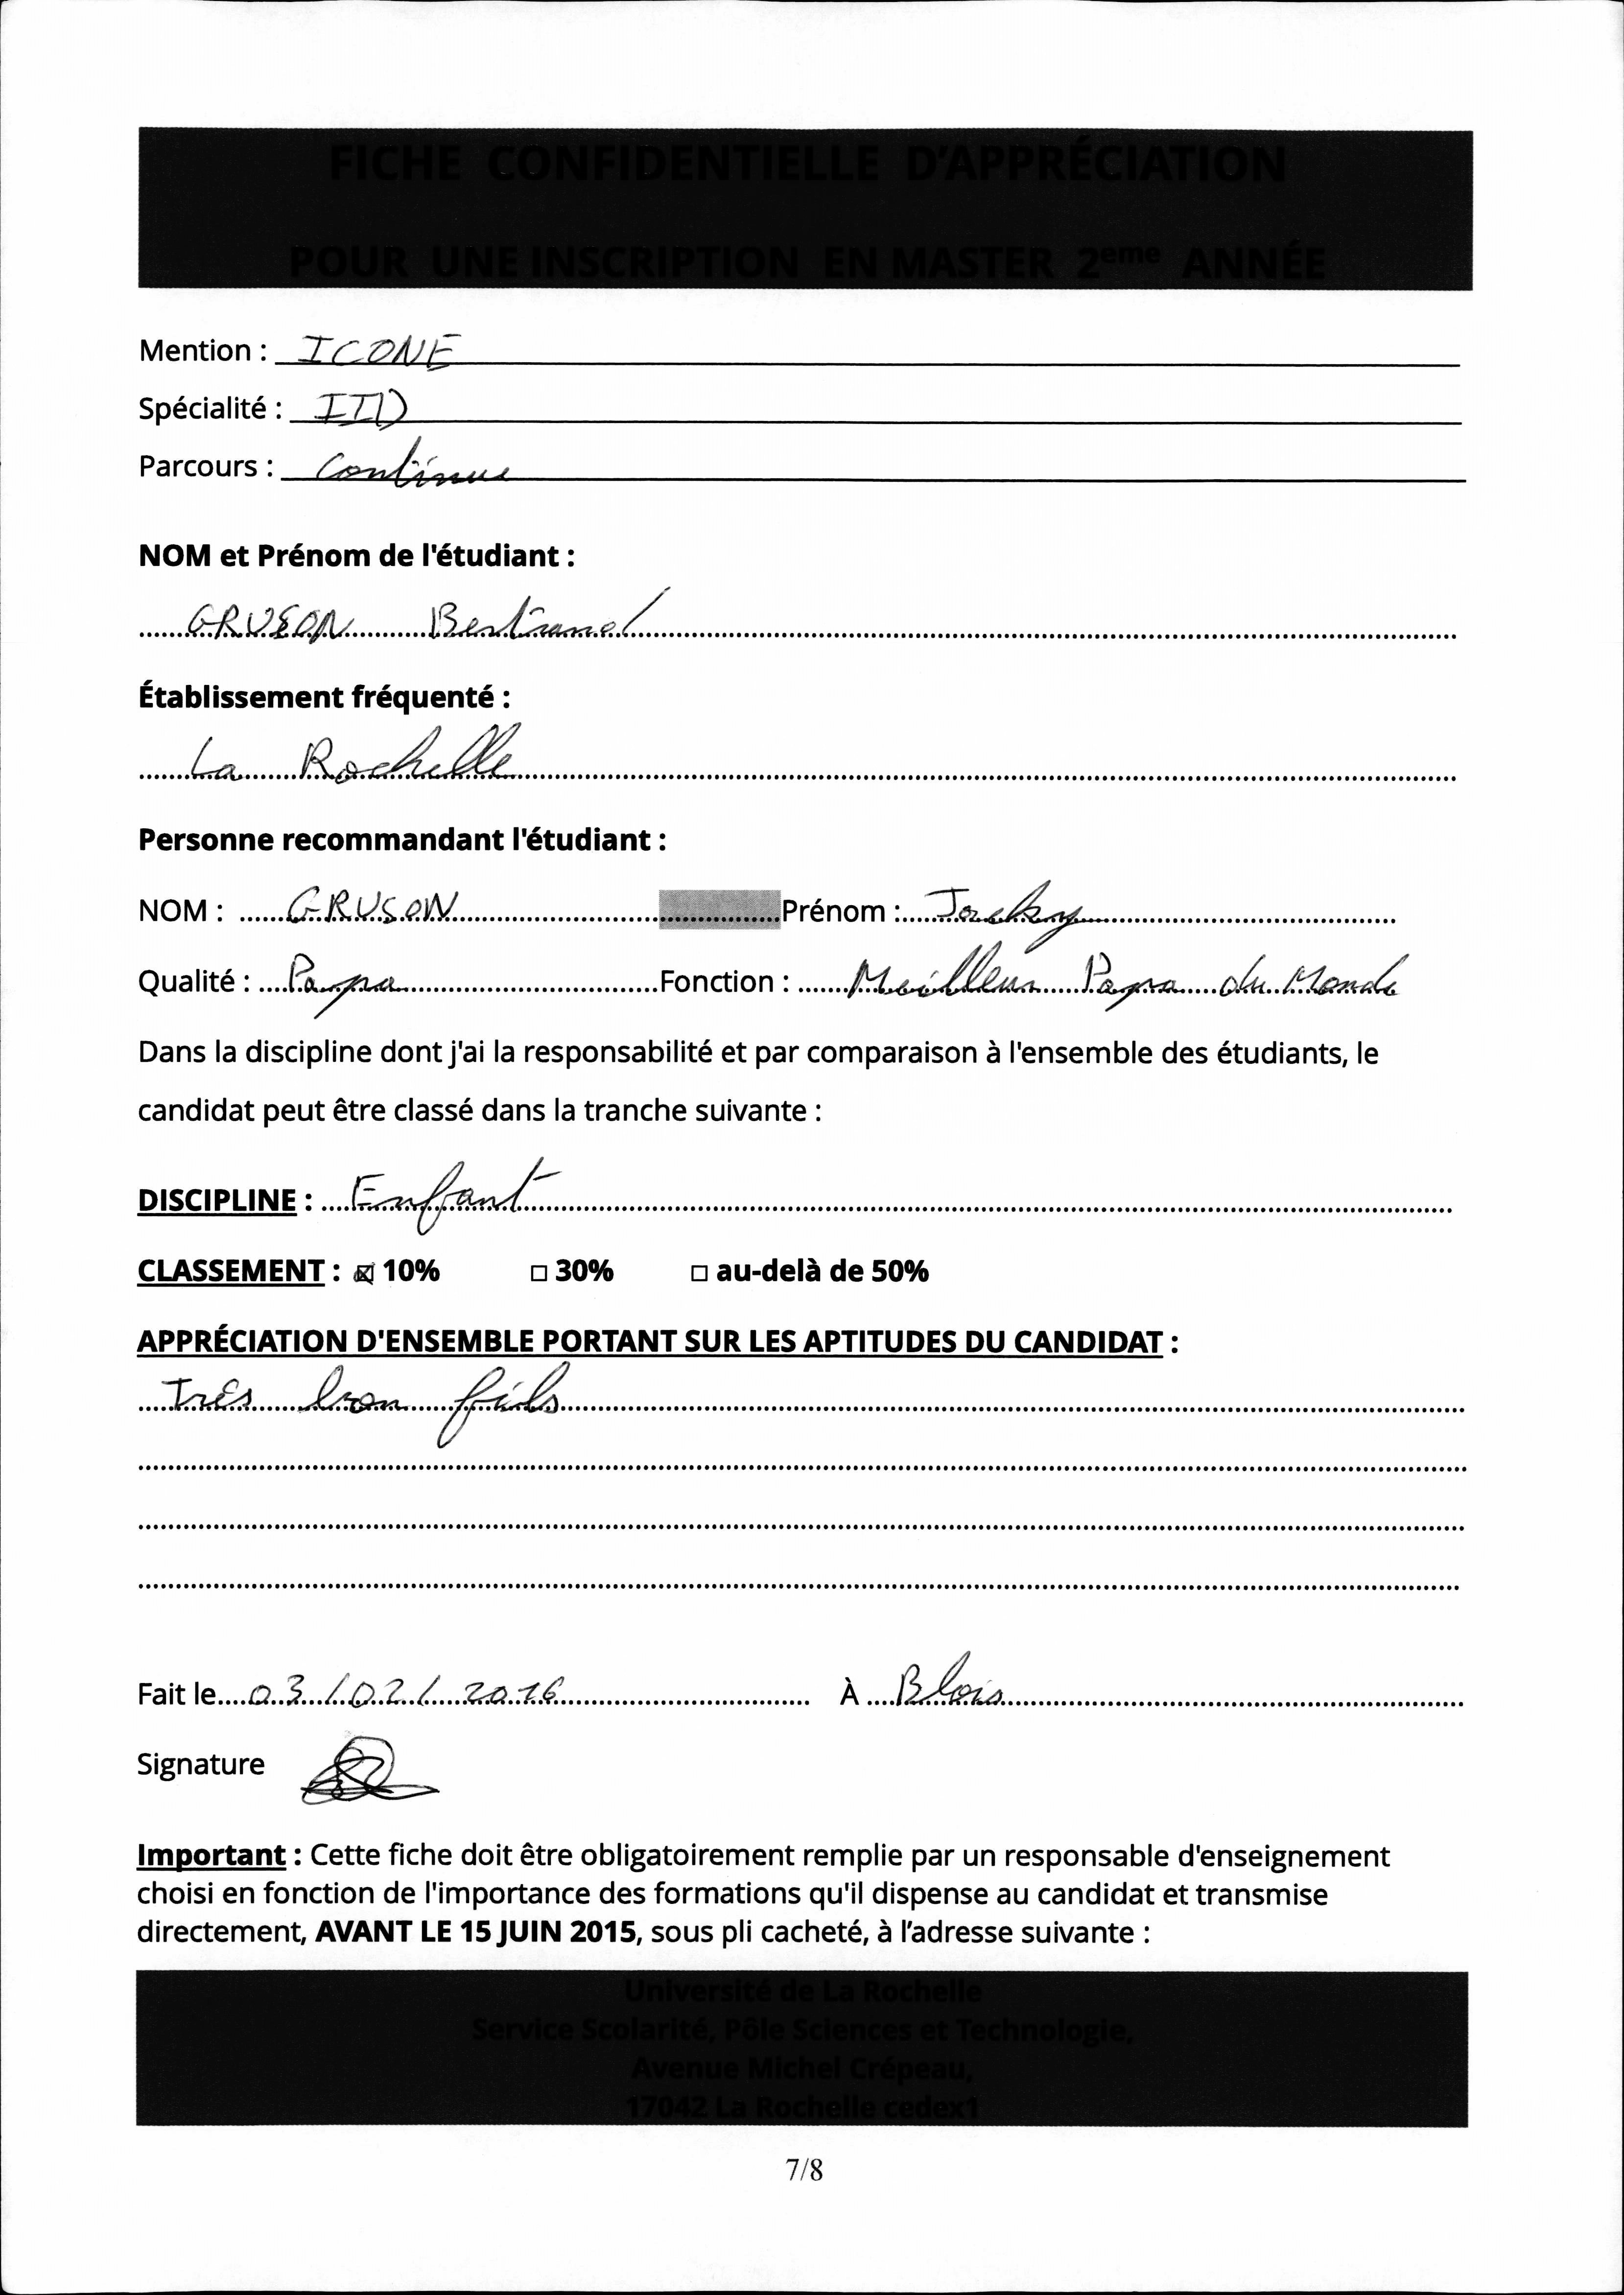 FICHE CONFIDENTIELLE D'APPRÉCIATION
POUR UNE INSCRIPTION EN MASTER 2eme ANNÉE
Mention : ICONE
Spécialité : IID
Parcours : Continue
NOM et Prénom de l'étudiant :
GRUSON Bertrand
Établissement fréquenté :
La Rochelle
Personne recommandant l'étudiant :
NOM : GRUSON Prénom : Jacky
Qualité : Papa Fonction : Meilleur Papa du Monde
Dans la discipline dont j'ai la responsabilité et par comparaison à l'ensemble des étudiants, le
candidat peut être classé dans la tranche suivante :
DISCIPLINE : Enfant
CLASSEMENT : ☒ 10% □ 30% □ au-delà de 50%
APPRÉCIATION D'ENSEMBLE PORTANT SUR LES APTITUDES DU CANDIDAT :
Très bon fils
Fait le 03/02/2016 À Blois
Signature
Important : Cette fiche doit être obligatoirement remplie par un responsable d'enseignement
choisi en fonction de l'importance des formations qu'il dispense au candidat et transmise
directement, AVANT LE 15 JUIN 2015, sous pli cacheté, à l'adresse suivante :
Université de La Rochelle
Service Scolarité, Pôle Sciences et Technologie,
Avenue Michel Crépeau,
17042 La Rochelle cedex1
7/8